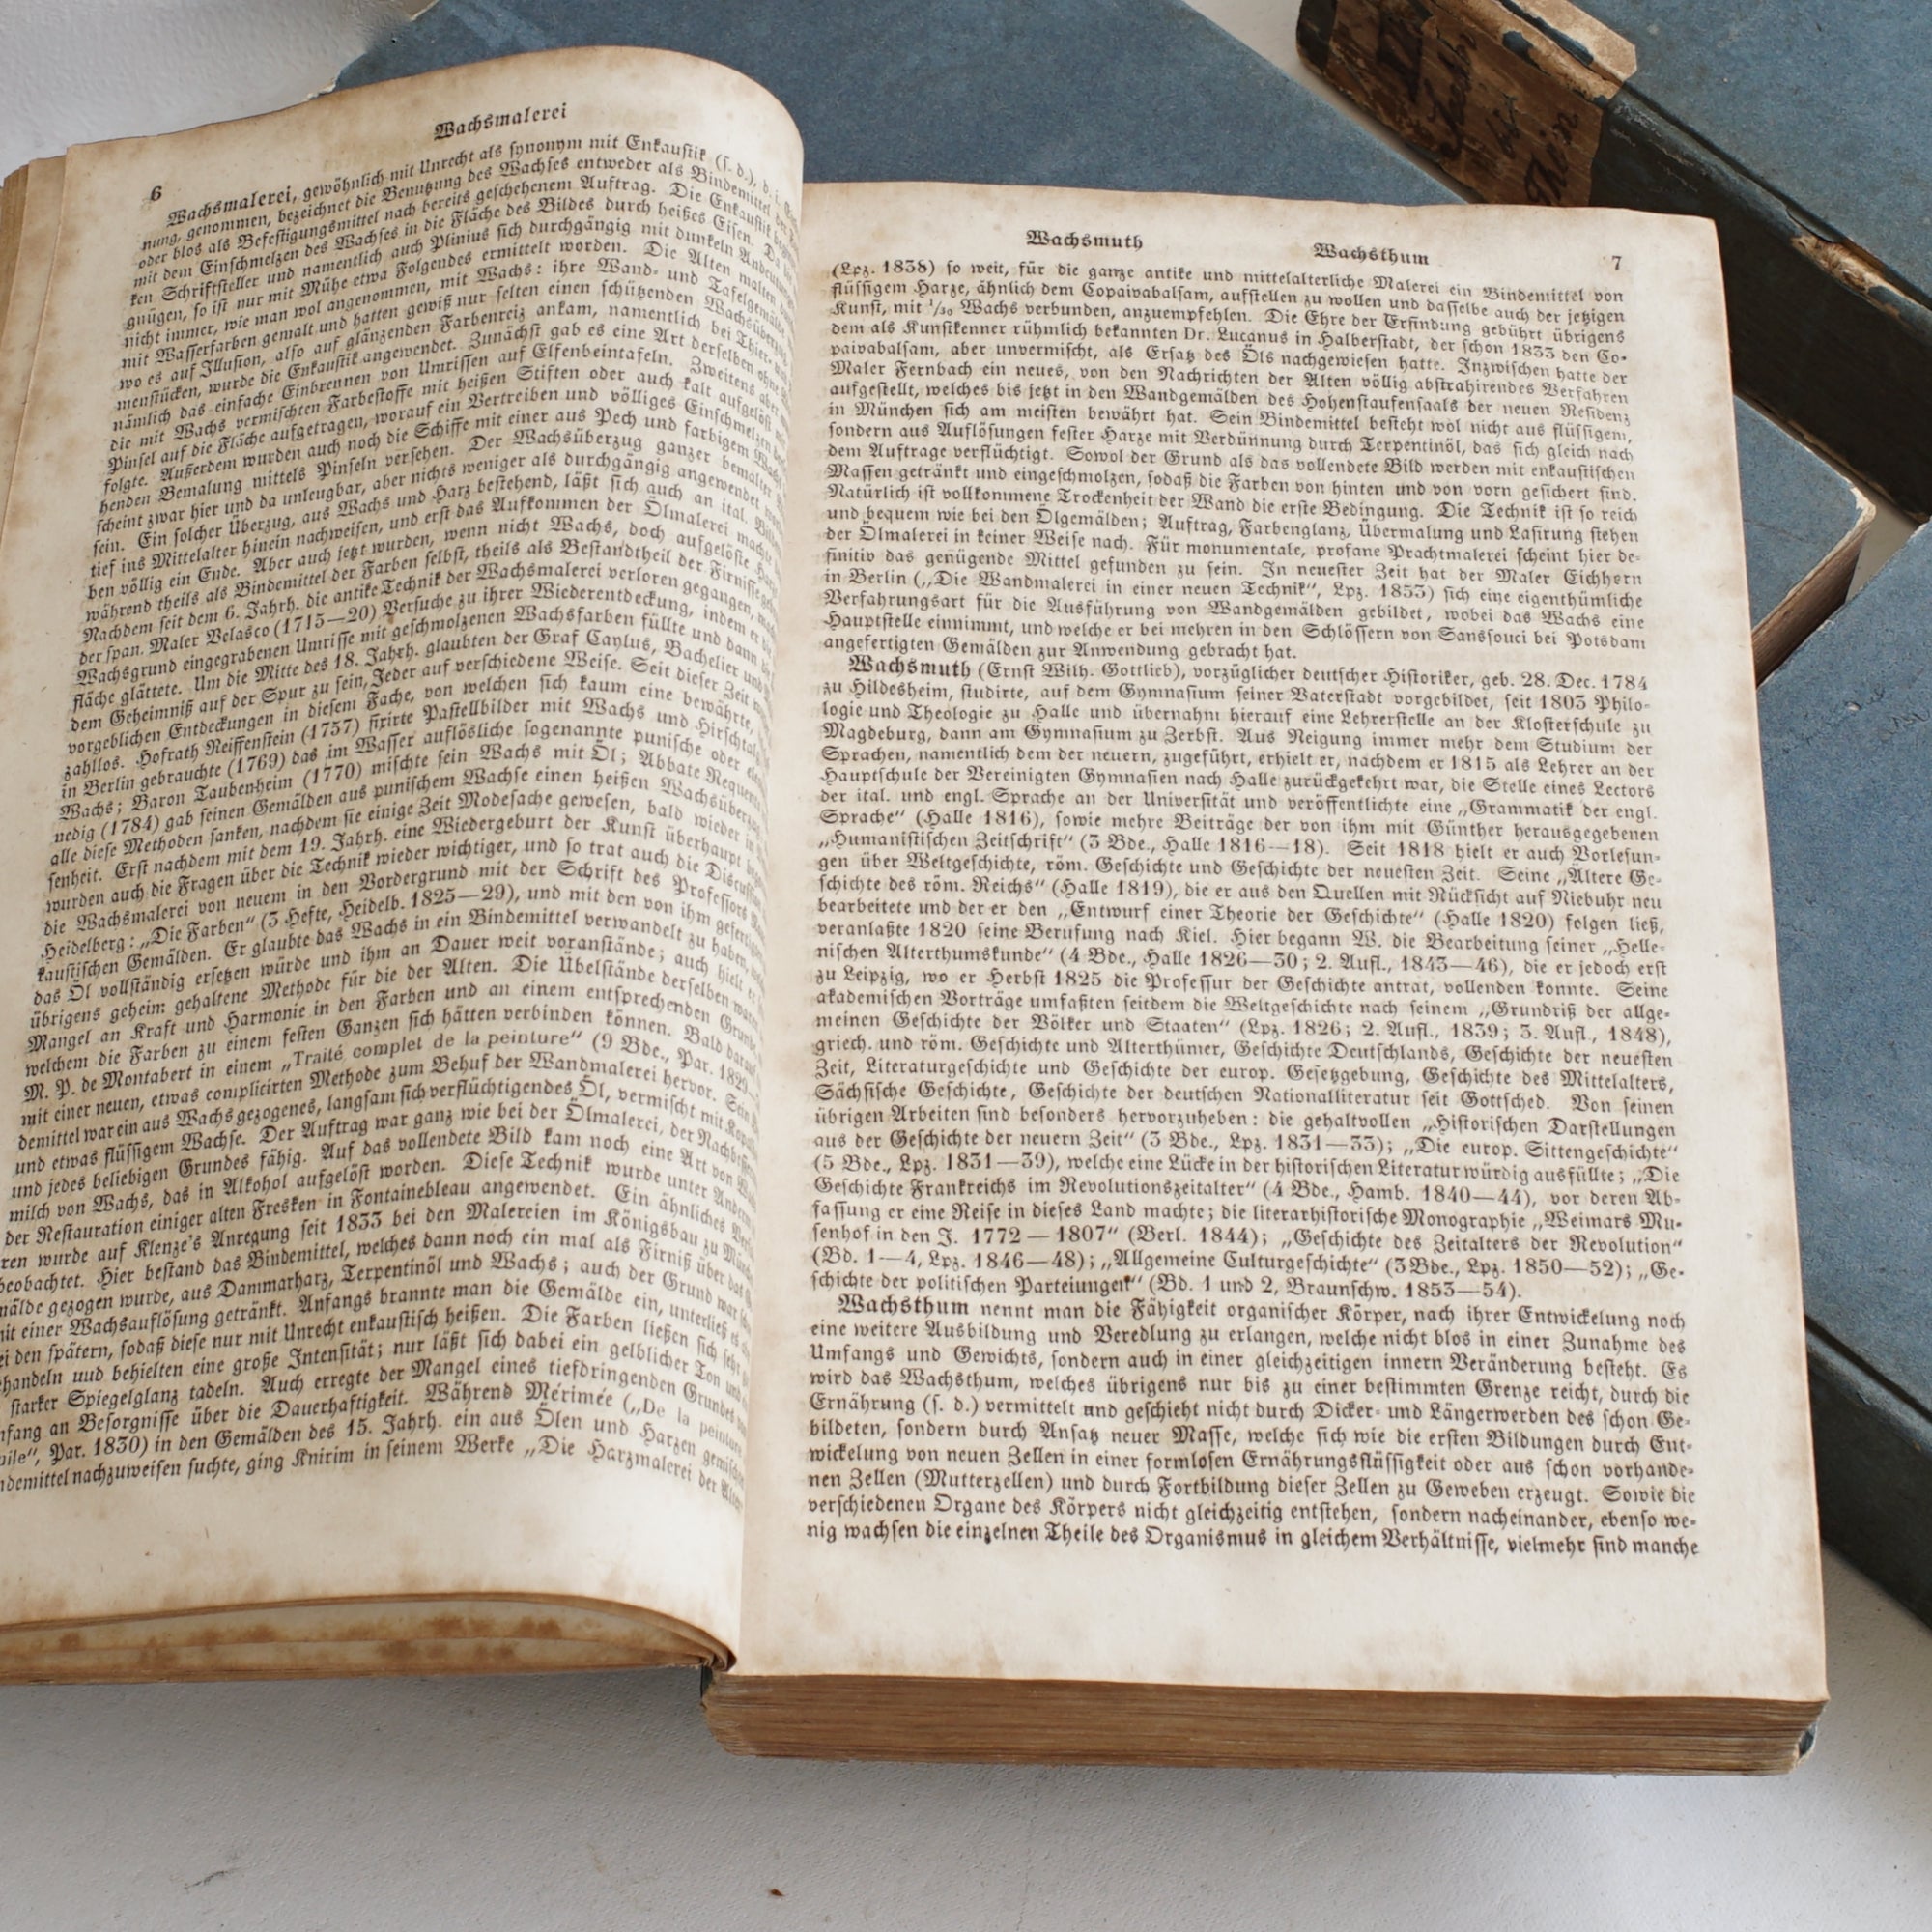 Wachsmalerei
6
Wachsmalerei, gewöhnlich mit Unrecht als synonym mit Enkaustik (s. d.), d. i.
nung, genommen, bezeichnet die Benutzung des Wachses entweder als Bindemittel der
oder blos als Befestigungsmittel nach bereits geschehenem Auftrag. Die Enkaustik
mit dem Einschmelzen des Wachses in die Fläche des Bildes durch heißes Eisen. Da
ken Schriftsteller und namentlich auch Plinius sich durchgängig mit dunkeln Andeutungen
gnügen, so ist nur mit Mühe etwa Folgendes ermittelt worden. Die Alten malten
nicht immer, wie man wol angenommen, mit Wachs: ihre Wand- und Tafelgemälde
mit Wasserfarben gemalt und hatten gewiß nur selten einen schützenden Wachsüberzug
wo es auf Illusion, also auf glänzenden Farbenreiz ankam, namentlich bei Thier- und
menstücken, wurde die Enkaustik angewendet. Zunächst gab es eine Art derselben ohne
nämlich das einfache Einbrennen von Umrissen auf Elfenbeintafeln. Zweitens aber
die mit Wachs vermischten Farbestoffe mit heißen Stiften oder auch kalt aufgelöst mit
Pinsel auf die Fläche aufgetragen, worauf ein Vertreiben und völliges Einschmelzen
folgte. Außerdem wurden auch noch die Schiffe mit einer aus Pech und farbigem Wachs
henden Bemalung mittels Pinseln versehen. Der Wachsüberzug ganzer bemalter
scheint zwar hier und da unleugbar, aber nichts weniger als durchgängig angewendet
sein. Ein solcher Überzug, aus Wachs und Harz bestehend, läßt sich auch an ital. Bildern
tief ins Mittelalter hinein nachweisen, und erst das Aufkommen der Ölmalerei machte
ben völlig ein Ende. Aber auch jetzt wurden, wenn nicht Wachs, doch aufgelöste Harze
während theils als Bindemittel der Farben selbst, theils als Bestandtheil der Firnisse
Nachdem seit dem 6. Jahrh. die antike Technik der Wachsmalerei verloren gegangen,
der span. Maler Velasco (1715—20) Versuche zu ihrer Wiederentdeckung, indem er die
Wachsgrund eingegrabenen Umrisse mit geschmolzenen Wachsfarben füllte und dann
fläche glättete. Um die Mitte des 18. Jahrh. glaubten der Graf Caylus, Bachelier und
dem Geheimniß auf der Spur zu sein, Jeder auf verschiedene Weise. Seit dieser Zeit
vorgeblichen Entdeckungen in diesem Fache, von welchen sich kaum eine bewährte,
zahllos. Hofrath Reiffenstein (1757) fixirte Pastellbilder mit Wachs und Hirschtalg
in Berlin gebrauchte (1769) das im Wasser auflösliche sogenannte punische oder
Wachs; Baron Taubenheim (1770) mischte sein Wachs mit Öl; Abbate Requeno
nedig (1784) gab seinen Gemälden aus punischem Wachse einen heißen Wachsüberzug
alle diese Methoden sanken, nachdem sie einige Zeit Modesache gewesen, bald wieder in
senheit. Erst nachdem mit dem 19. Jahrh. eine Wiedergeburt der Kunst überhaupt
wurden auch die Fragen über die Technik wieder wichtiger, und so trat auch die Discussion
die Wachsmalerei von neuem in den Vordergrund mit der Schrift des Professors
Heidelberg: „Die Farben“ (3 Hefte, Heidelb. 1825—29), und mit den von ihm gefertigten
kaustischen Gemälden. Er glaubte das Wachs in ein Bindemittel verwandelt zu haben,
das Öl vollständig ersetzen würde und ihm an Dauer weit voranstände; auch hielt er
übrigens geheim gehaltene Methode für die der Alten. Die Übelstände derselben waren
Mangel an Kraft und Harmonie in den Farben und an einem entsprechenden Grunde
welchem die Farben zu einem festen Ganzen sich hätten verbinden können. Bald darauf
M. P. de Montabert in einem „Traité complet de la peinture“ (9 Bde., Par. 1829
mit einer neuen, etwas complicirten Methode zum Behuf der Wandmalerei hervor. Sein
demittel war ein aus Wachs gezogenes, langsam sich verflüchtigendes Öl, vermischt mit
und etwas flüssigem Wachse. Der Auftrag war ganz wie bei der Ölmalerei, der Nachbesserung
und jedes beliebigen Grundes fähig. Auf das vollendete Bild kam noch eine Art von
milch von Wachs, das in Alkohol aufgelöst worden. Diese Technik wurde unter Anderm
der Restauration einiger alten Fresken in Fontainebleau angewendet. Ein ähnliches
ren wurde auf Klenze's Anregung seit 1833 bei den Malereien im Königsbau zu München
beobachtet. Hier bestand das Bindemittel, welches dann noch ein mal als Firniß über das
mälde gezogen wurde, aus Dammarharz, Terpentinöl und Wachs; auch der Grund war
mit einer Wachsauflösung getränkt. Anfangs brannte man die Gemälde ein, unterließ es
ei den spätern, sodaß diese nur mit Unrecht enkaustisch heißen. Die Farben ließen sich sehr
handeln und behielten eine große Intensität; nur läßt sich dabei ein gelblicher Ton und
starker Spiegelglanz tadeln. Auch erregte der Mangel eines tiefdringenden Grundes
nfang an Besorgnisse über die Dauerhaftigkeit. Während Mérimée („De la peinture
uile“, Par. 1830) in den Gemälden des 15. Jahrh. ein aus Ölen und Harzen gemischtes
ndemittel nachzuweisen suchte, ging Knirim in seinem Werke „Die Harzmalerei der Alten
Wachsmuth Wachsthum 7
(Lpz. 1838) so weit, für die ganze antike und mittelalterliche Malerei ein Bindemittel von
flüssigem Harze, ähnlich dem Copaivabalsam, aufstellen zu wollen und dasselbe auch der jetzigen
Kunst, mit 1/30 Wachs verbunden, anzuempfehlen. Die Ehre der Erfindung gebührt übrigens
dem als Kunstkenner rühmlich bekannten Dr. Lucanus in Halberstadt, der schon 1833 den Co-
paivabalsam, aber unvermischt, als Ersatz des Öls nachgewiesen hatte. Inzwischen hatte der
Maler Fernbach ein neues, von den Nachrichten der Alten völlig abstrahirendes Verfahren
aufgestellt, welches bis jetzt in den Wandgemälden des Hohenstaufensaals der neuen Residenz
in München sich am meisten bewährt hat. Sein Bindemittel besteht wol nicht aus flüssigem,
sondern aus Auflösungen fester Harze mit Verdünnung durch Terpentinöl, das sich gleich nach
dem Auftrage verflüchtigt. Sowol der Grund als das vollendete Bild werden mit enkaustischen
Massen getränkt und eingeschmolzen, sodaß die Farben von hinten und von vorn gesichert sind.
Natürlich ist vollkommene Trockenheit der Wand die erste Bedingung. Die Technik ist so reich
und bequem wie bei den Ölgemälden; Auftrag, Farbenglanz, Übermalung und Lasirung stehen
der Ölmalerei in keiner Weise nach. Für monumentale, profane Prachtmalerei scheint hier de-
finitiv das genügende Mittel gefunden zu sein. In neuester Zeit hat der Maler Eichhorn
in Berlin („Die Wandmalerei in einer neuen Technik“, Lpz. 1853) sich eine eigenthümliche
Verfahrungsart für die Ausführung von Wandgemälden gebildet, wobei das Wachs eine
Hauptstelle einnimmt, und welche er bei mehren in den Schlössern von Sanssouci bei Potsdam
angefertigten Gemälden zur Anwendung gebracht hat.
Wachsmuth (Ernst Wilh. Gottlieb), vorzüglicher deutscher Historiker, geb. 28. Dec. 1784
zu Hildesheim, studirte, auf dem Gymnasium seiner Vaterstadt vorgebildet, seit 1803 Philo-
logie und Theologie zu Halle und übernahm hierauf eine Lehrerstelle an der Klosterschule zu
Magdeburg, dann am Gymnasium zu Zerbst. Aus Neigung immer mehr dem Studium der
Sprachen, namentlich dem der neuern, zugeführt, erhielt er, nachdem er 1815 als Lehrer an der
Hauptschule der Vereinigten Gymnasien nach Halle zurückgekehrt war, die Stelle eines Lectors
der ital. und engl. Sprache an der Universität und veröffentlichte eine „Grammatik der engl.
Sprache“ (Halle 1816), sowie mehre Beiträge der von ihm mit Günther herausgegebenen
„Humanistischen Zeitschrift“ (3 Bde., Halle 1816—18). Seit 1818 hielt er auch Vorlesun-
gen über Weltgeschichte, röm. Geschichte und Geschichte der neuesten Zeit. Seine „Ältere Ge-
schichte des röm. Reichs“ (Halle 1819), die er aus den Quellen mit Rücksicht auf Niebuhr neu
bearbeitete und der er den „Entwurf einer Theorie der Geschichte“ (Halle 1820) folgen ließ,
veranlaßte 1820 seine Berufung nach Kiel. Hier begann W. die Bearbeitung seiner „Helle-
nischen Alterthumskunde“ (4 Bde., Halle 1826—30; 2. Aufl., 1843—46), die er jedoch erst
zu Leipzig, wo er Herbst 1825 die Professur der Geschichte antrat, vollenden konnte. Seine
akademischen Vorträge umfaßten seitdem die Weltgeschichte nach seinem „Grundriß der allge-
meinen Geschichte der Völker und Staaten“ (Lpz. 1826; 2. Aufl., 1839; 3. Aufl., 1848),
griech. und röm. Geschichte und Alterthümer, Geschichte Deutschlands, Geschichte der neuesten
Zeit, Literaturgeschichte und Geschichte der europ. Gesetzgebung, Geschichte des Mittelalters,
Sächsische Geschichte, Geschichte der deutschen Nationalliteratur seit Gottsched. Von seinen
übrigen Arbeiten sind besonders hervorzuheben: die gehaltvollen „Historischen Darstellungen
aus der Geschichte der neuern Zeit“ (3 Bde., Lpz. 1831—33); „Die europ. Sittengeschichte“
(5 Bde., Lpz. 1831—39), welche eine Lücke in der historischen Literatur würdig ausfüllte; „Die
Geschichte Frankreichs im Revolutionszeitalter“ (4 Bde., Hamb. 1840—44), vor deren Ab-
fassung er eine Reise in dieses Land machte; die literarhistorische Monographie „Weimars Mu-
senhof in den J. 1772 — 1807“ (Berl. 1844); „Geschichte des Zeitalters der Revolution“
(Bd. 1—4, Lpz. 1846—48); „Allgemeine Culturgeschichte“ (3 Bde., Lpz. 1850—52); „Ge-
schichte der politischen Parteiungen“ (Bd. 1 und 2, Braunschw. 1853—54).
Wachsthum nennt man die Fähigkeit organischer Körper, nach ihrer Entwickelung noch
eine weitere Ausbildung und Veredlung zu erlangen, welche nicht blos in einer Zunahme des
Umfangs und Gewichts, sondern auch in einer gleichzeitigen innern Veränderung besteht. Es
wird das Wachsthum, welches übrigens nur bis zu einer bestimmten Grenze reicht, durch die
Ernährung (s. d.) vermittelt und geschieht nicht durch Dicker- und Längerwerden des schon Ge-
bildeten, sondern durch Ansatz neuer Masse, welche sich wie die ersten Bildungen durch Ent-
wickelung von neuen Zellen in einer formlosen Ernährungsflüssigkeit oder aus schon vorhande-
nen Zellen (Mutterzellen) und durch Fortbildung dieser Zellen zu Geweben erzeugt. Sowie die
verschiedenen Organe des Körpers nicht gleichzeitig entstehen, sondern nacheinander, ebenso we-
nig wachsen die einzelnen Theile des Organismus in gleichem Verhältnisse, vielmehr sind manche